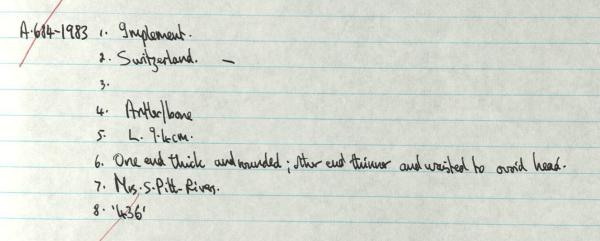 A.684-1983 1. Implement.
2. Switzerland. —
3.
4. Antler/bone
5. L. 9.4cm.
6. One end thick and rounded; other end thinner and waisted to ovoid head.
7. Mrs. S. Pitt-Rivers.
8. '436'